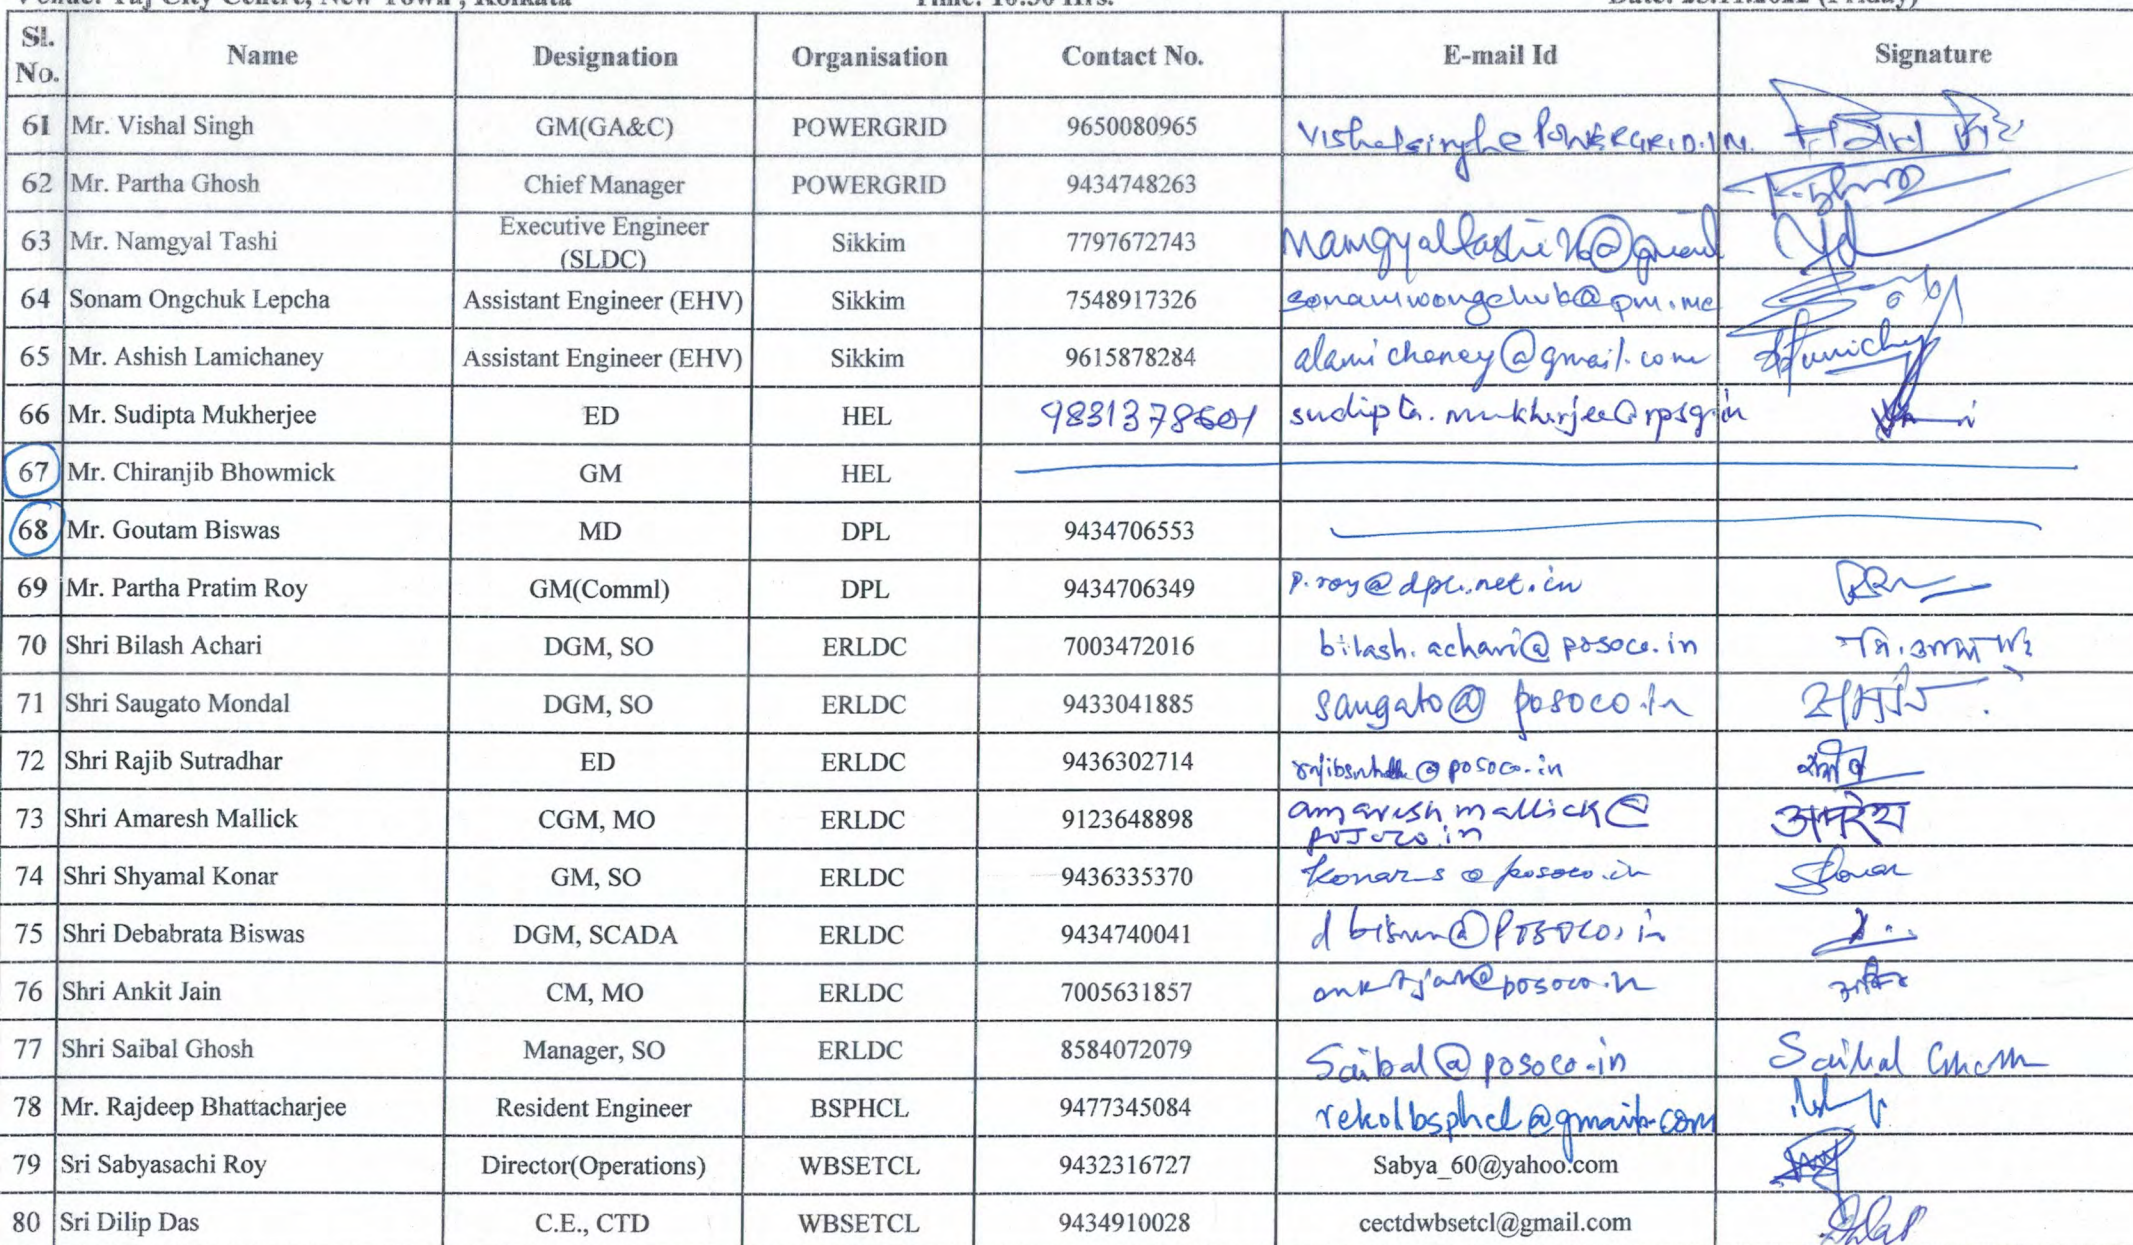 Venue: Taj City Centre, New Town, Kolkata Time: 10:30 Hrs. Date: 25.11.2022 (Friday)
Sl. No. Name Designation Organisation Contact No. E-mail Id Signature
61 Mr. Vishal Singh GM(GA&C) POWERGRID 9650080965 vishalsingh@POWERGRID.IN
62 Mr. Partha Ghosh Chief Manager POWERGRID 9434748263
63 Mr. Namgyal Tashi Executive Engineer (SLDC) Sikkim 7797672743
64 Sonam Ongchuk Lepcha Assistant Engineer (EHV) Sikkim 7548917326 sonamwongchuk@pm.me
65 Mr. Ashish Lamichaney Assistant Engineer (EHV) Sikkim 9615878284 alamichaney@gmail.com
66 Mr. Sudipta Mukherjee ED HEL sudipta.mukherjee@rpsg.in
67 Mr. Chiranjib Bhowmick GM HEL
68 Mr. Goutam Biswas MD DPL 9434706553
69 Mr. Partha Pratim Roy GM(Comml) DPL 9434706349 p.roy@dpl.net.in
70 Shri Bilash Achari DGM, SO ERLDC 7003472016 bilash.achari@posoco.in
71 Shri Saugato Mondal DGM, SO ERLDC 9433041885 saugato@posoco.in
72 Shri Rajib Sutradhar ED ERLDC 9436302714
73 Shri Amaresh Mallick CGM, MO ERLDC 9123648898 amareshmallick@ अमरेश
posoco.in
74 Shri Shyamal Konar GM, SO ERLDC 9436335370 konar_s@posoco.in
75 Shri Debabrata Biswas DGM, SCADA ERLDC 9434740041
76 Shri Ankit Jain CM, MO ERLDC 7005631857 ankitjain@posoco.in
77 Shri Saibal Ghosh Manager, SO ERLDC 8584072079 Saibal@posoco.in Saibal Ghosh
78 Mr. Rajdeep Bhattacharjee Resident Engineer BSPHCL 9477345084 rekolbsphcl@gmail.com
79 Sri Sabyasachi Roy Director(Operations) WBSETCL 9432316727 Sabya_60@yahoo.com
80 Sri Dilip Das C.E., CTD WBSETCL 9434910028 cectdwbsetcl@gmail.com